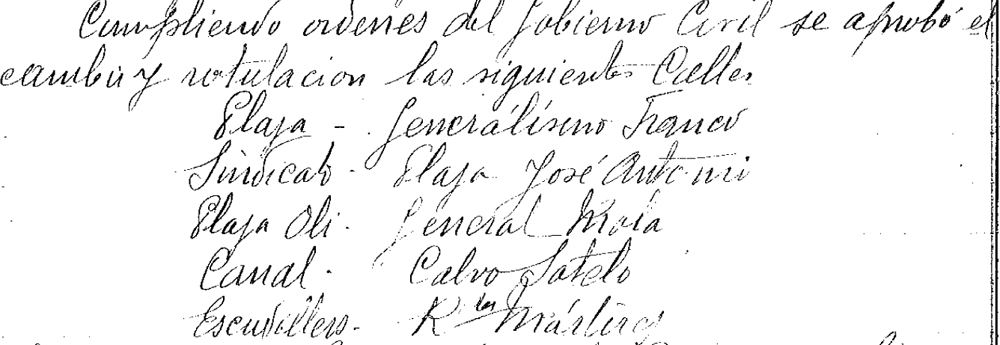 Cumpliendo ordenes del Gobierno Civil se aprobó el
cambio y rotulacion las siguientes Calles
Plaza - Generálisimo Franco
Sindicato - Plaza José Antonio
Plaza Oli - General Mola
Canal - Calvo Sotelo
Escudillers - los Mártires